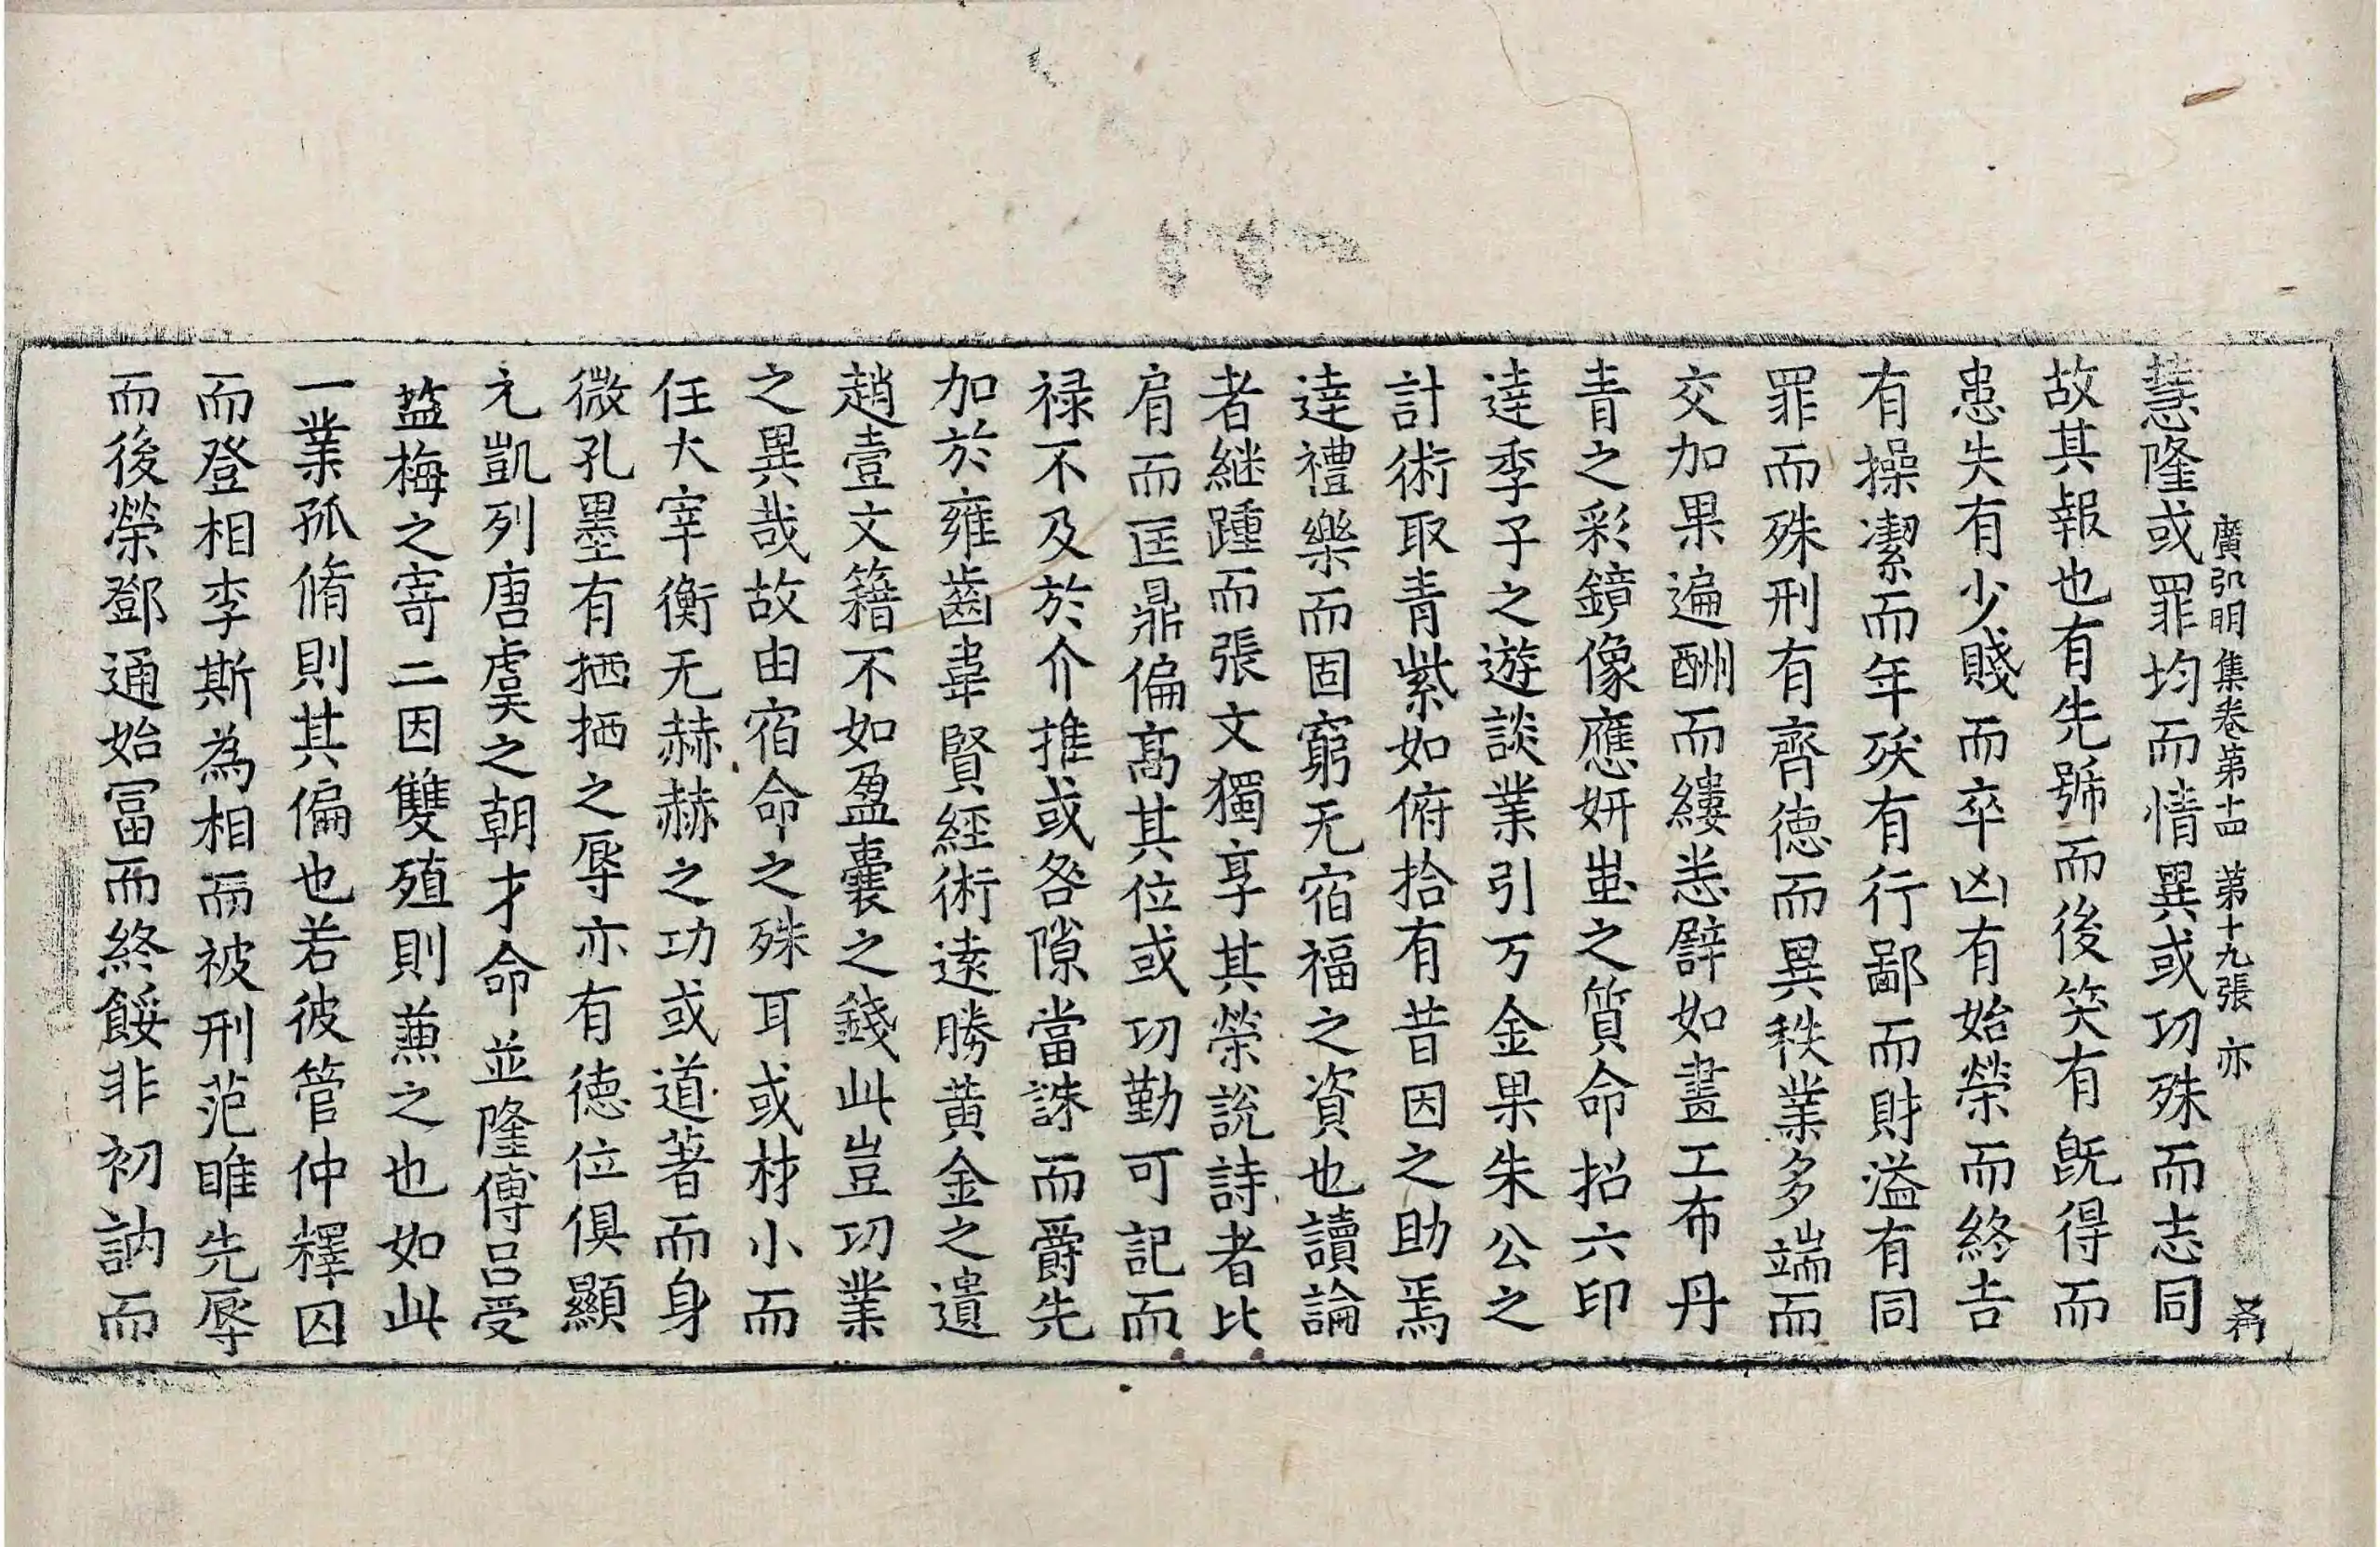 廣弘明集卷第十四 第十九張 亦
慧隆或罪均而情異或功殊而志同
故其報也有先號而後笑有旣得而
患失有少賤而卒凶有始榮而終吉
有操潔而年殀有行鄙而財溢有同
罪而殊刑有齊德而異秩業多端而
交加果遍酬而縷悉譬如畫工布丹
青之彩鏡像應妍蚩之質命招六印
逹季子之遊談業引万金果朱公之
計術取青紫如俯拾有昔因之助焉
逹禮樂而固窮无宿福之資也讀論
者継踵而張文獨享其榮說詩者比
肩而匡鼎偏髙其位或功勤可記而
禄不及於介推或咎隙當誅而爵先
加於雍齒韋賢經術遠勝黄金之遺
趙壹文籍不如盈囊之錢此豈功業
之異哉故由宿命之殊耳或材小而
任大宰衡无赫赫之功或道著而身
微孔墨有栖栖之辱亦有德位俱顯
元凱列唐虞之朝才命並隆傅吕受
塩梅之寄二因雙殖則兼之也如此
一業孤脩則其偏也若彼管仲釋囚
而登相李斯為相而被刑范睢先辱
而後榮鄧通始冨而終餒非初訥而